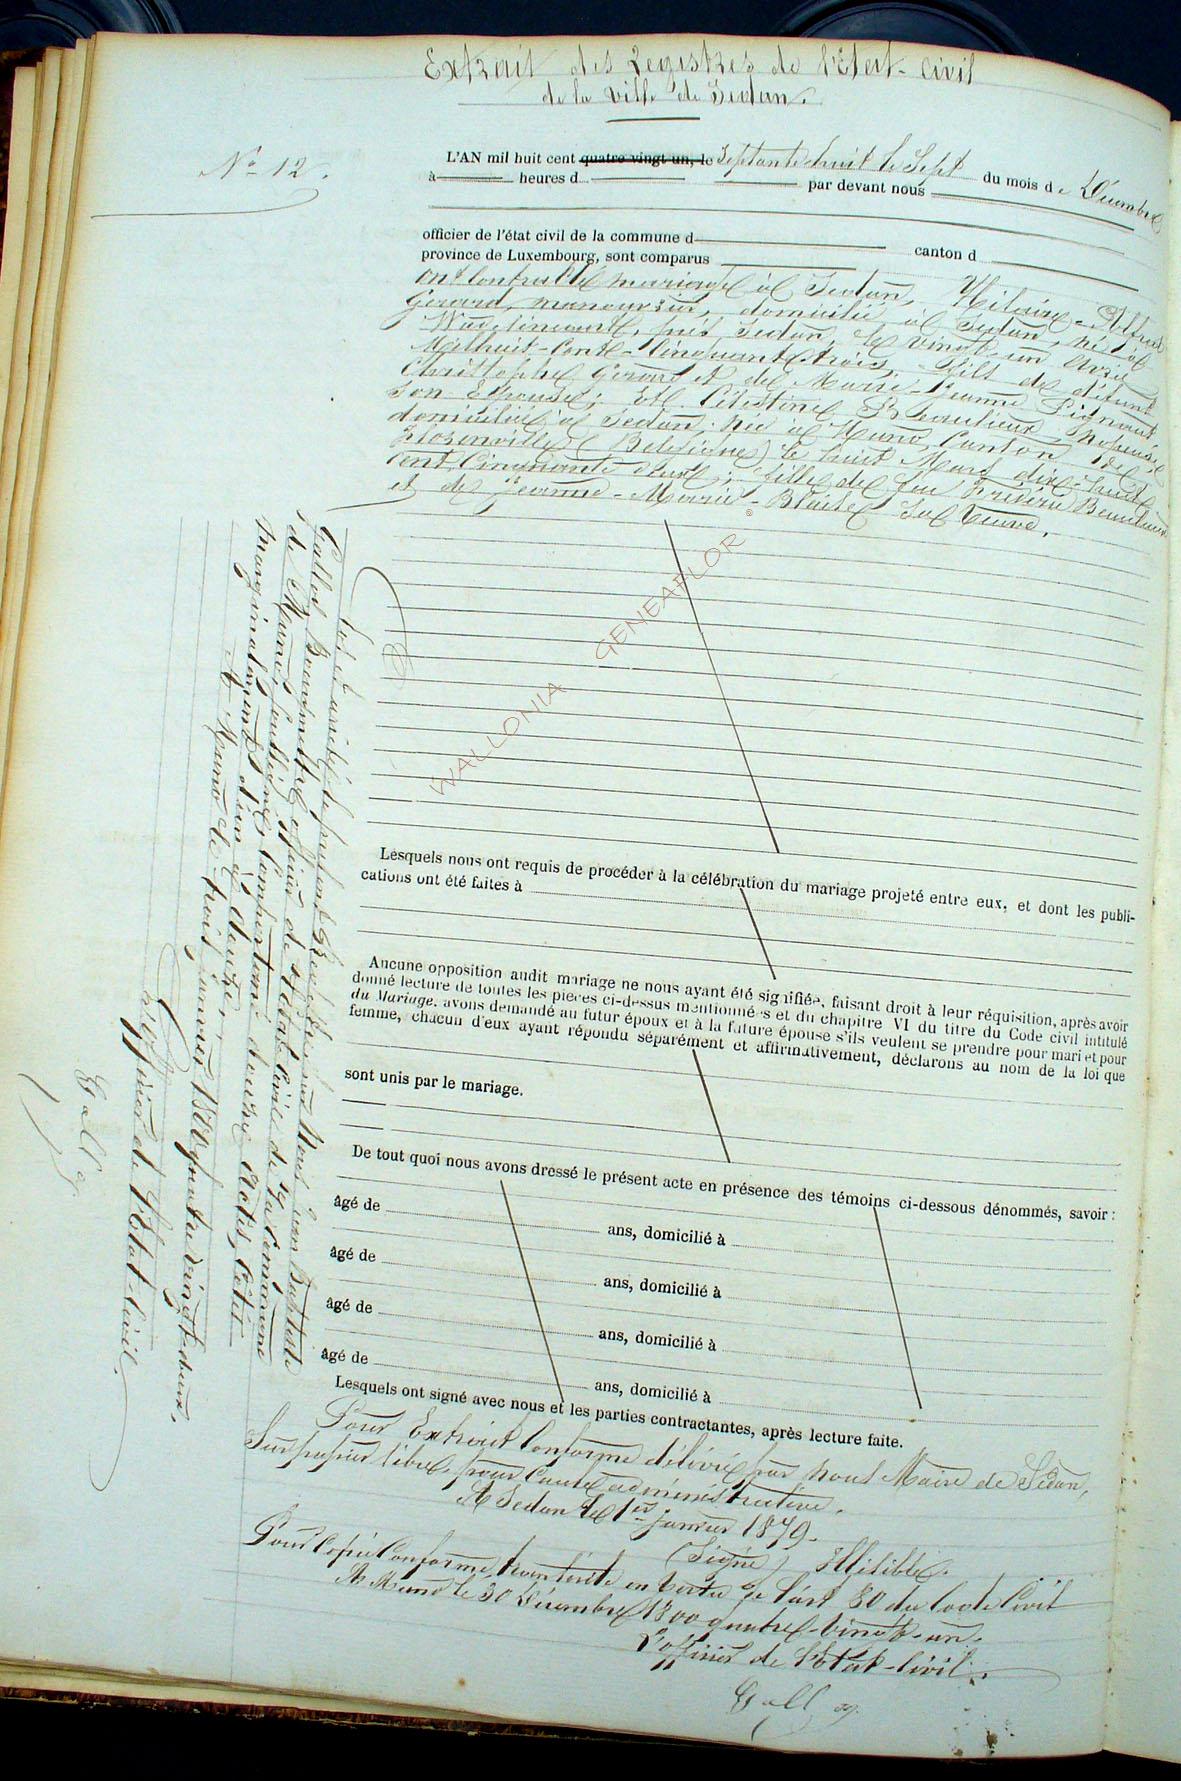 Extrait des Registres de l'Etat-Civil
de la Ville de Sedan.
N° 12.
L'AN mil huit cent quatre-vingt-un, le Septante huit le Sept du mois de Décembre
à heures d par devant nous
officier de l'état civil de la commune d canton d
province de Luxembourg, sont comparus
ont contracté mariage à Sedan, Hilaire-Alfred
Gérard, manouvrier, domicilié à Sedan, né à
Wadelincourt, près Sedan, le vingt-un avril
Mil huit-Cent-Cinquante trois, Fils de défunt
Christophe Gérard et de Marie-Jeanne Pignart
son Epouse; Et Célestine Beaulieux,
domiciliée à Sedan, née à Muno, Canton de
Florenville (Belgique) le huit Mars dix-huit
Cent Cinquante ; fille de feu Frédéric Beaulieux
et de Jeanne-Marie-Blaise Sa Veuve.
WALLONIA GENEAFLOR ©
Lesquels nous ont requis de procéder à la célébration du mariage projeté entre eux, et dont les publi-
cations ont été faites à
Aucune opposition audit mariage ne nous ayant été signifiée, faisant droit à leur réquisition, après avoir
donné lecture de toutes les pièces ci-dessus mentionnées et du chapitre VI du titre du Code civil intitulé
du Mariage, avons demandé au futur époux et à la future épouse s'ils veulent se prendre pour mari et pour
femme, chacun d'eux ayant répondu séparément et affirmativement, déclarons au nom de la loi que
sont unis par le mariage.
De tout quoi nous avons dressé le présent acte en présence des témoins ci-dessous dénommés, savoir :
âgé de ans, domicilié à
âgé de ans, domicilié à
âgé de ans, domicilié à
âgé de ans, domicilié à
Lesquels ont signé avec nous et les parties contractantes, après lecture faite.
Pour Extrait Conforme délivré par nous Maire de Sedan,
Sur papier libre, pour Cause administrative.
A Sedan le 1er janvier 1879.
(Signé) Illisible.
Pour Copie Conforme, transcrite en vertu de l'art 80 du Code Civil
A Muno le 30 Décembre 1800 quatre-vingt-un.
L'officier de l'Etat-Civil.
Clos et arrêté le présent Registre par Nous Jean Baptiste
Bourgmestre officier de l'Etat Civil de la Commune
de Muno, contenant douze Actes, Cotés
Marginalement d'un à douze.
A Muno le trois janvier 1800 quatre vingt-deux.
L'officier de l'Etat-Civil.